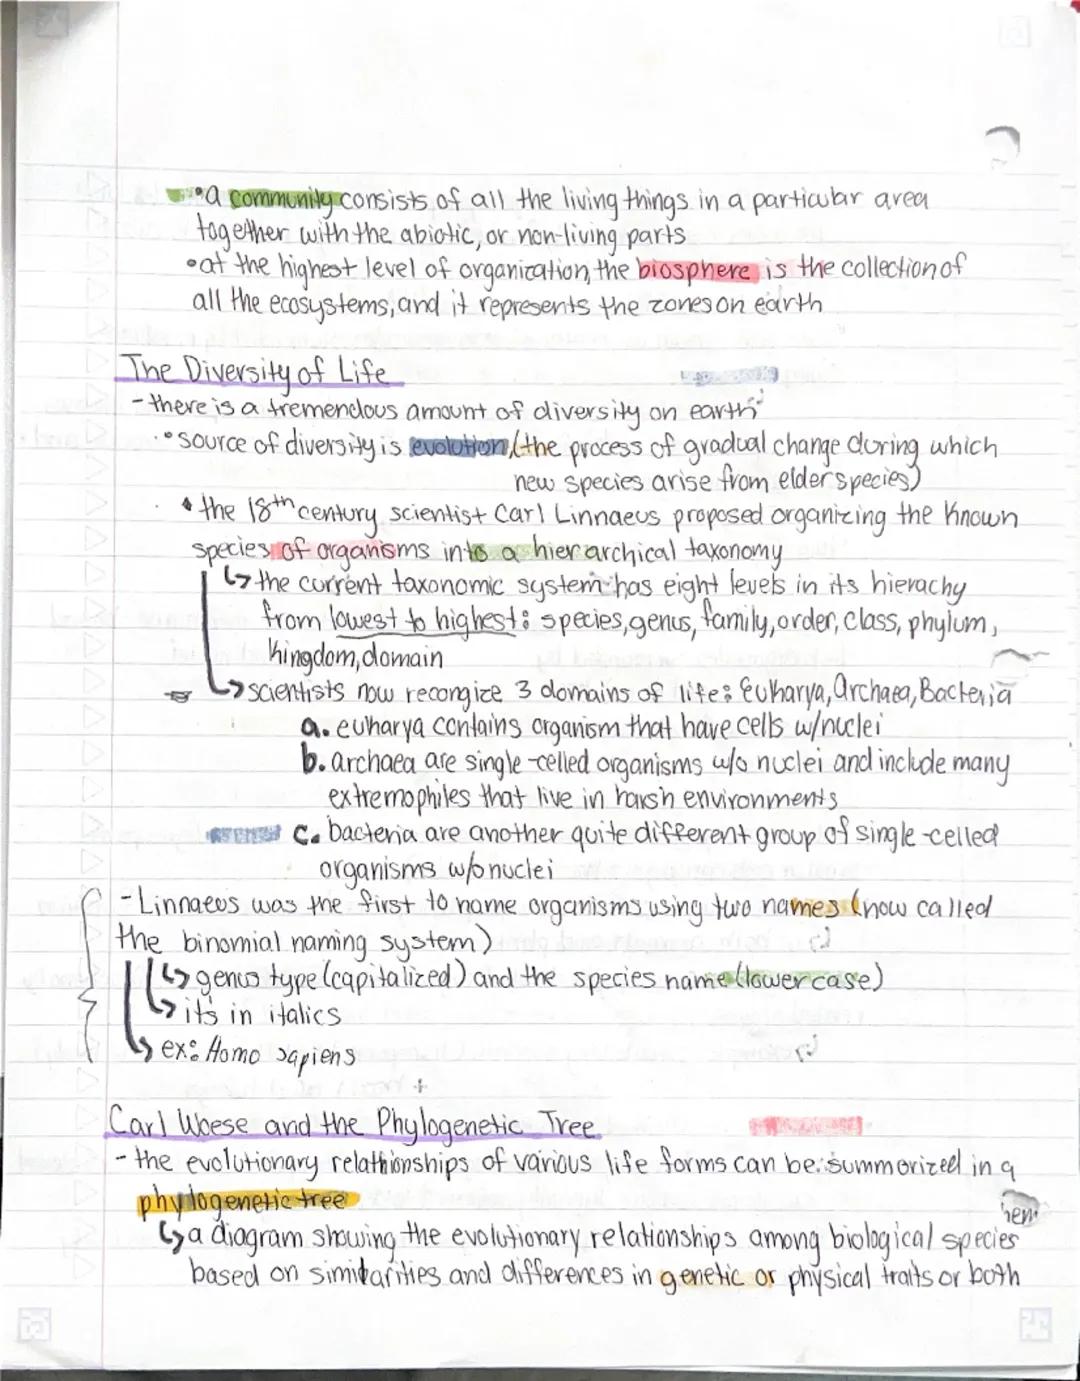 • a community consists of all the living things in a particular area
together with the abiotic, or non-living parts
• at the highest level of organization, the biosphere is the collection of
all the ecosystems, and it represents the zones on earth
The Diversity of Life
- there is a tremendous amount of diversity on earth
• source of diversity is evolution (the process of gradual change during which
new species arise from elder species)
• the 18th century scientist Carl Linnaeus proposed organizing the known
species of organisms into a hierarchical taxonomy
↳ the current taxonomic system has eight levels in its hierachy
from lowest to highest: species, genus, family, order, class, phylum,
kingdom, domain
↳ scientists now recongize 3 domains of life: Eukarya, Archaea, Bacteria
a. eukarya contains organism that have cells w/nuclei
b. archaea are single-celled organisms w/o nuclei and include many
extremophiles that live in harsh environments
c. bacteria are another quite different group of single-celled
organisms w/o nuclei
- Linnaeus was the first to name organisms using two names (now called
the binomial naming system)
↳ genus type (capitalized) and the species name (lowercase)
↳ it's in italics
↳ ex: Homo sapiens
Carl Woese and the Phylogenetic Tree
- the evolutionary relathionships of various life forms can be summorized in a
phylogenetic tree
↳ a diagram showing the evolutionary relationships among biological species
based on similarities and differences in genetic or physical traits or both